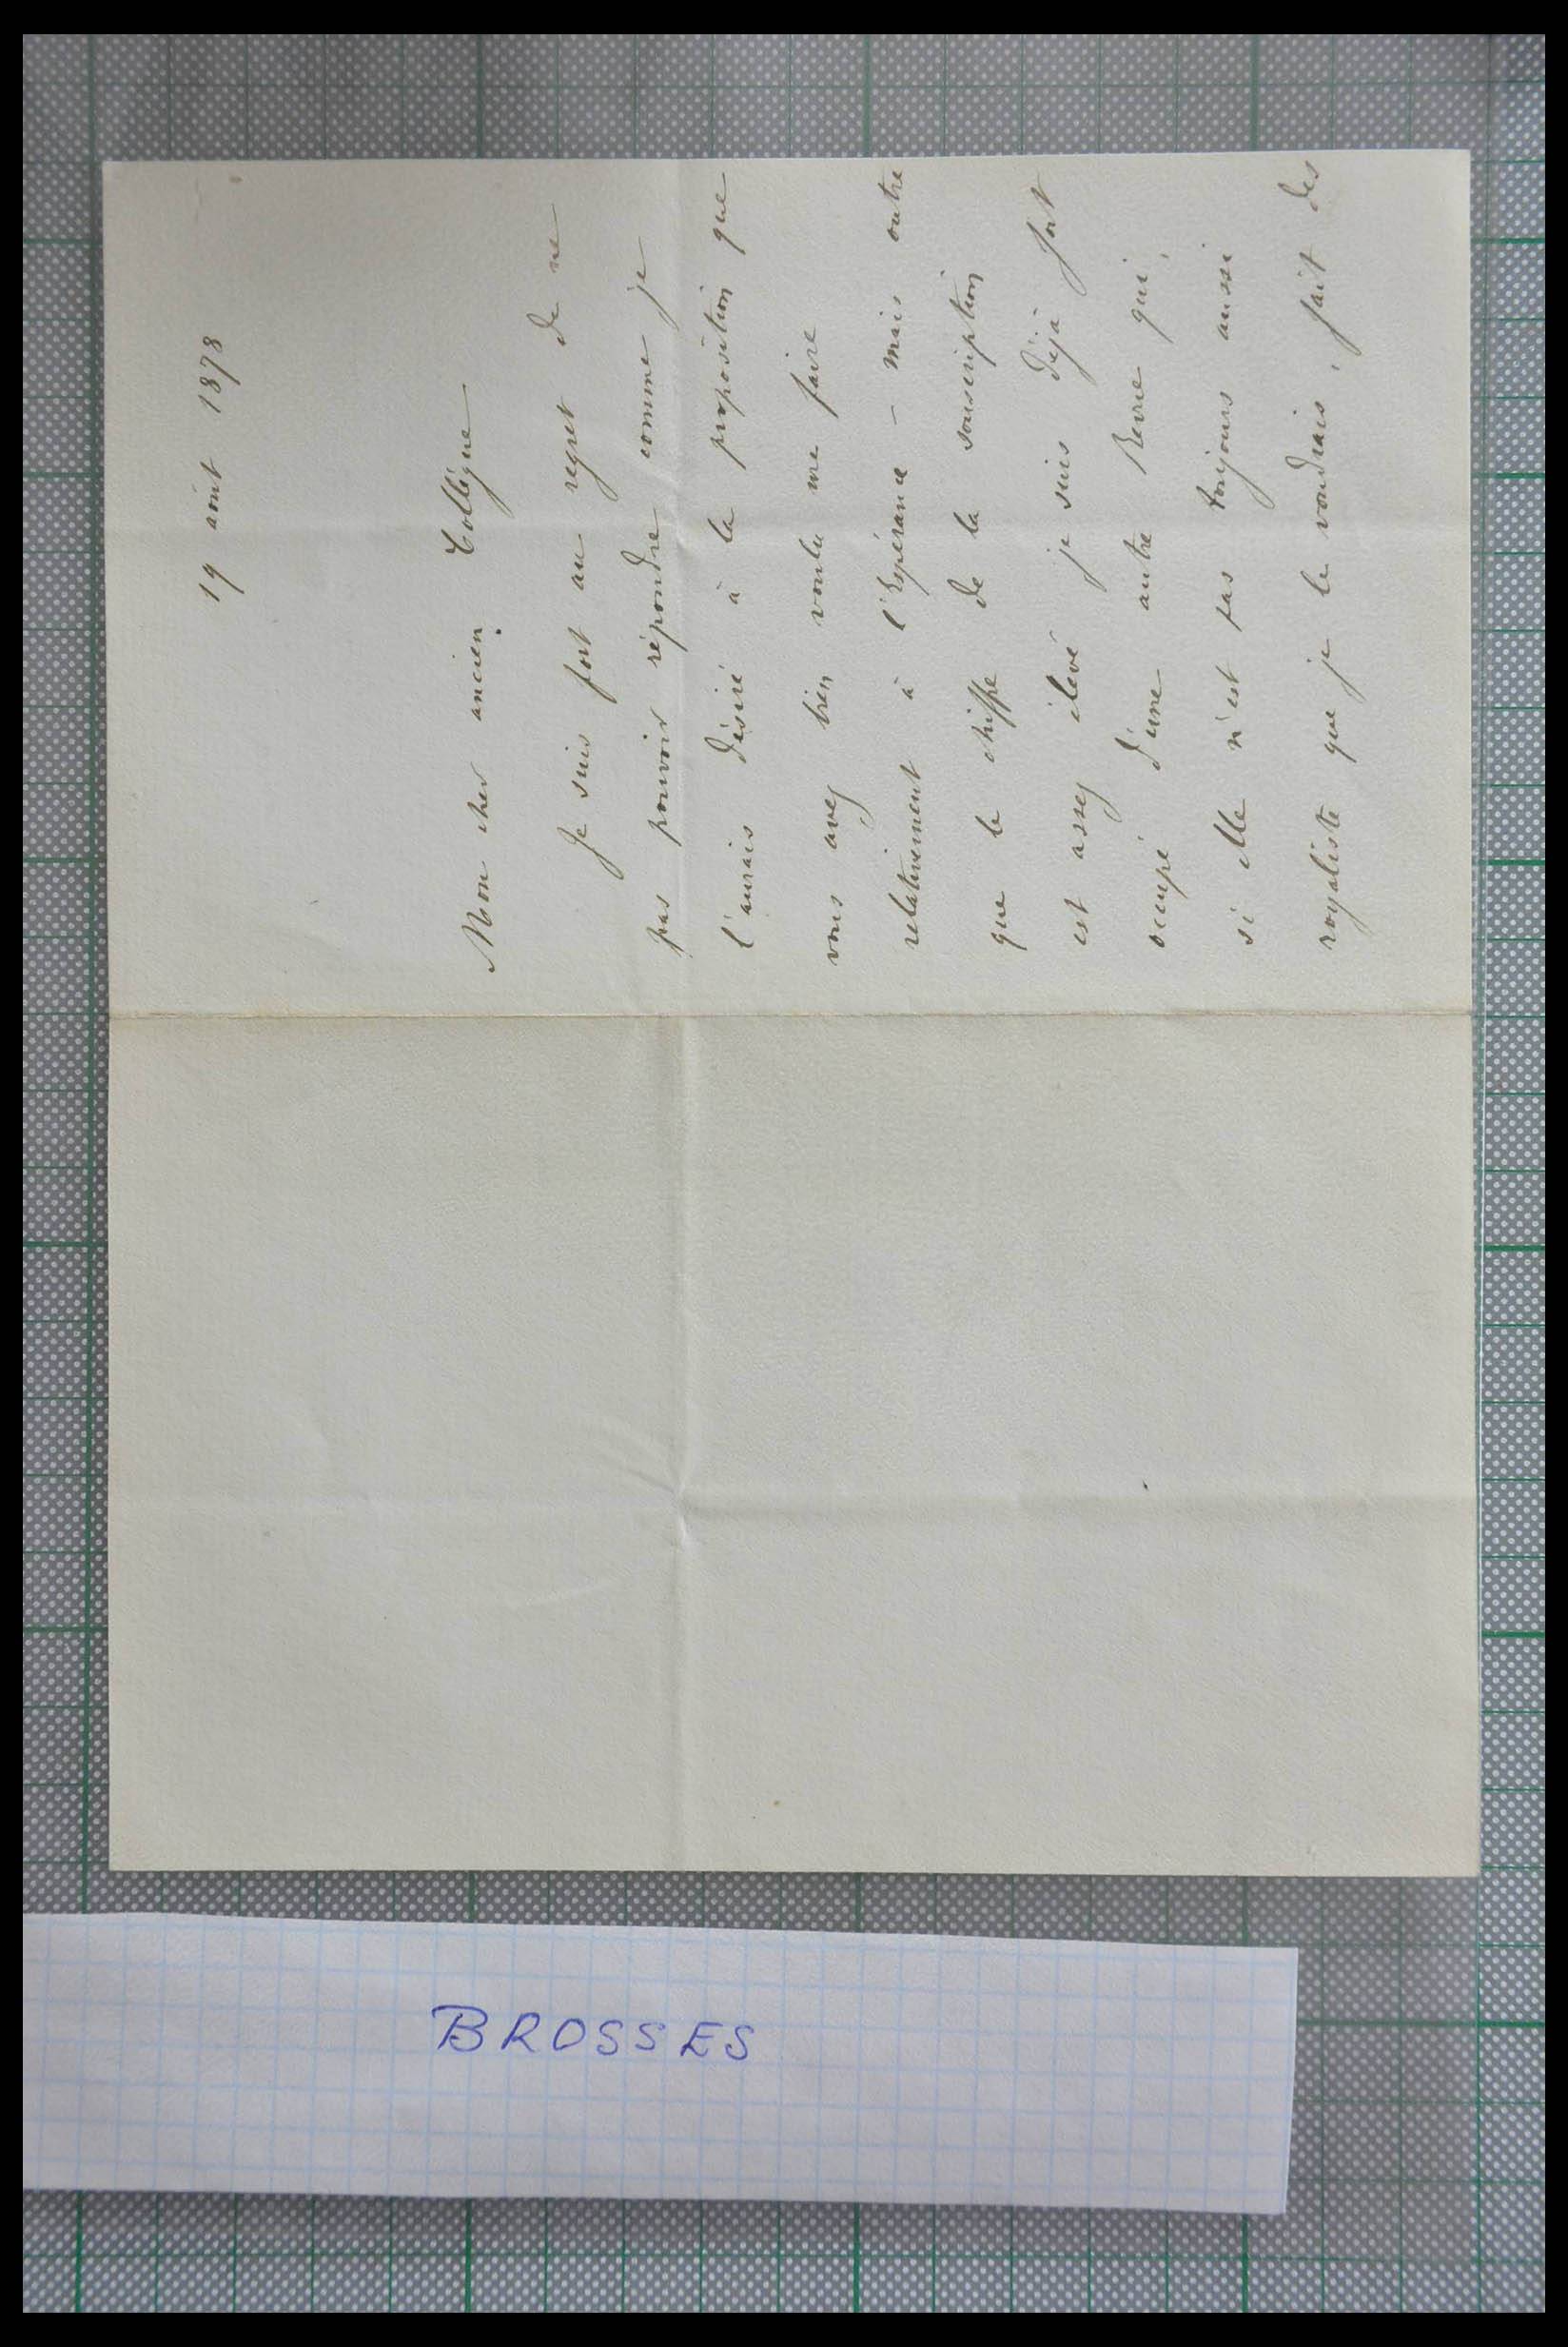 19 août 1878
Mon cher ancien Collègue
Je suis fort au regret de ne
pas pouvoir répondre comme je
l'aurais désiré à la proposition que
vous avez bien voulu me faire
relativement à l'Espérance - mais outre
que le chiffre de la souscription
est assez élevé je suis déjà fort
occupé d'une autre Revue qui,
si elle n'est pas toujours aussi
royaliste que je le voudrais, fait des
BROSSES